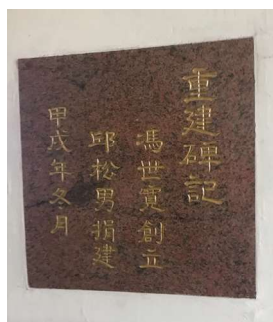 重建碑記
馮世實創立
邱松男捐建
甲戌年冬月